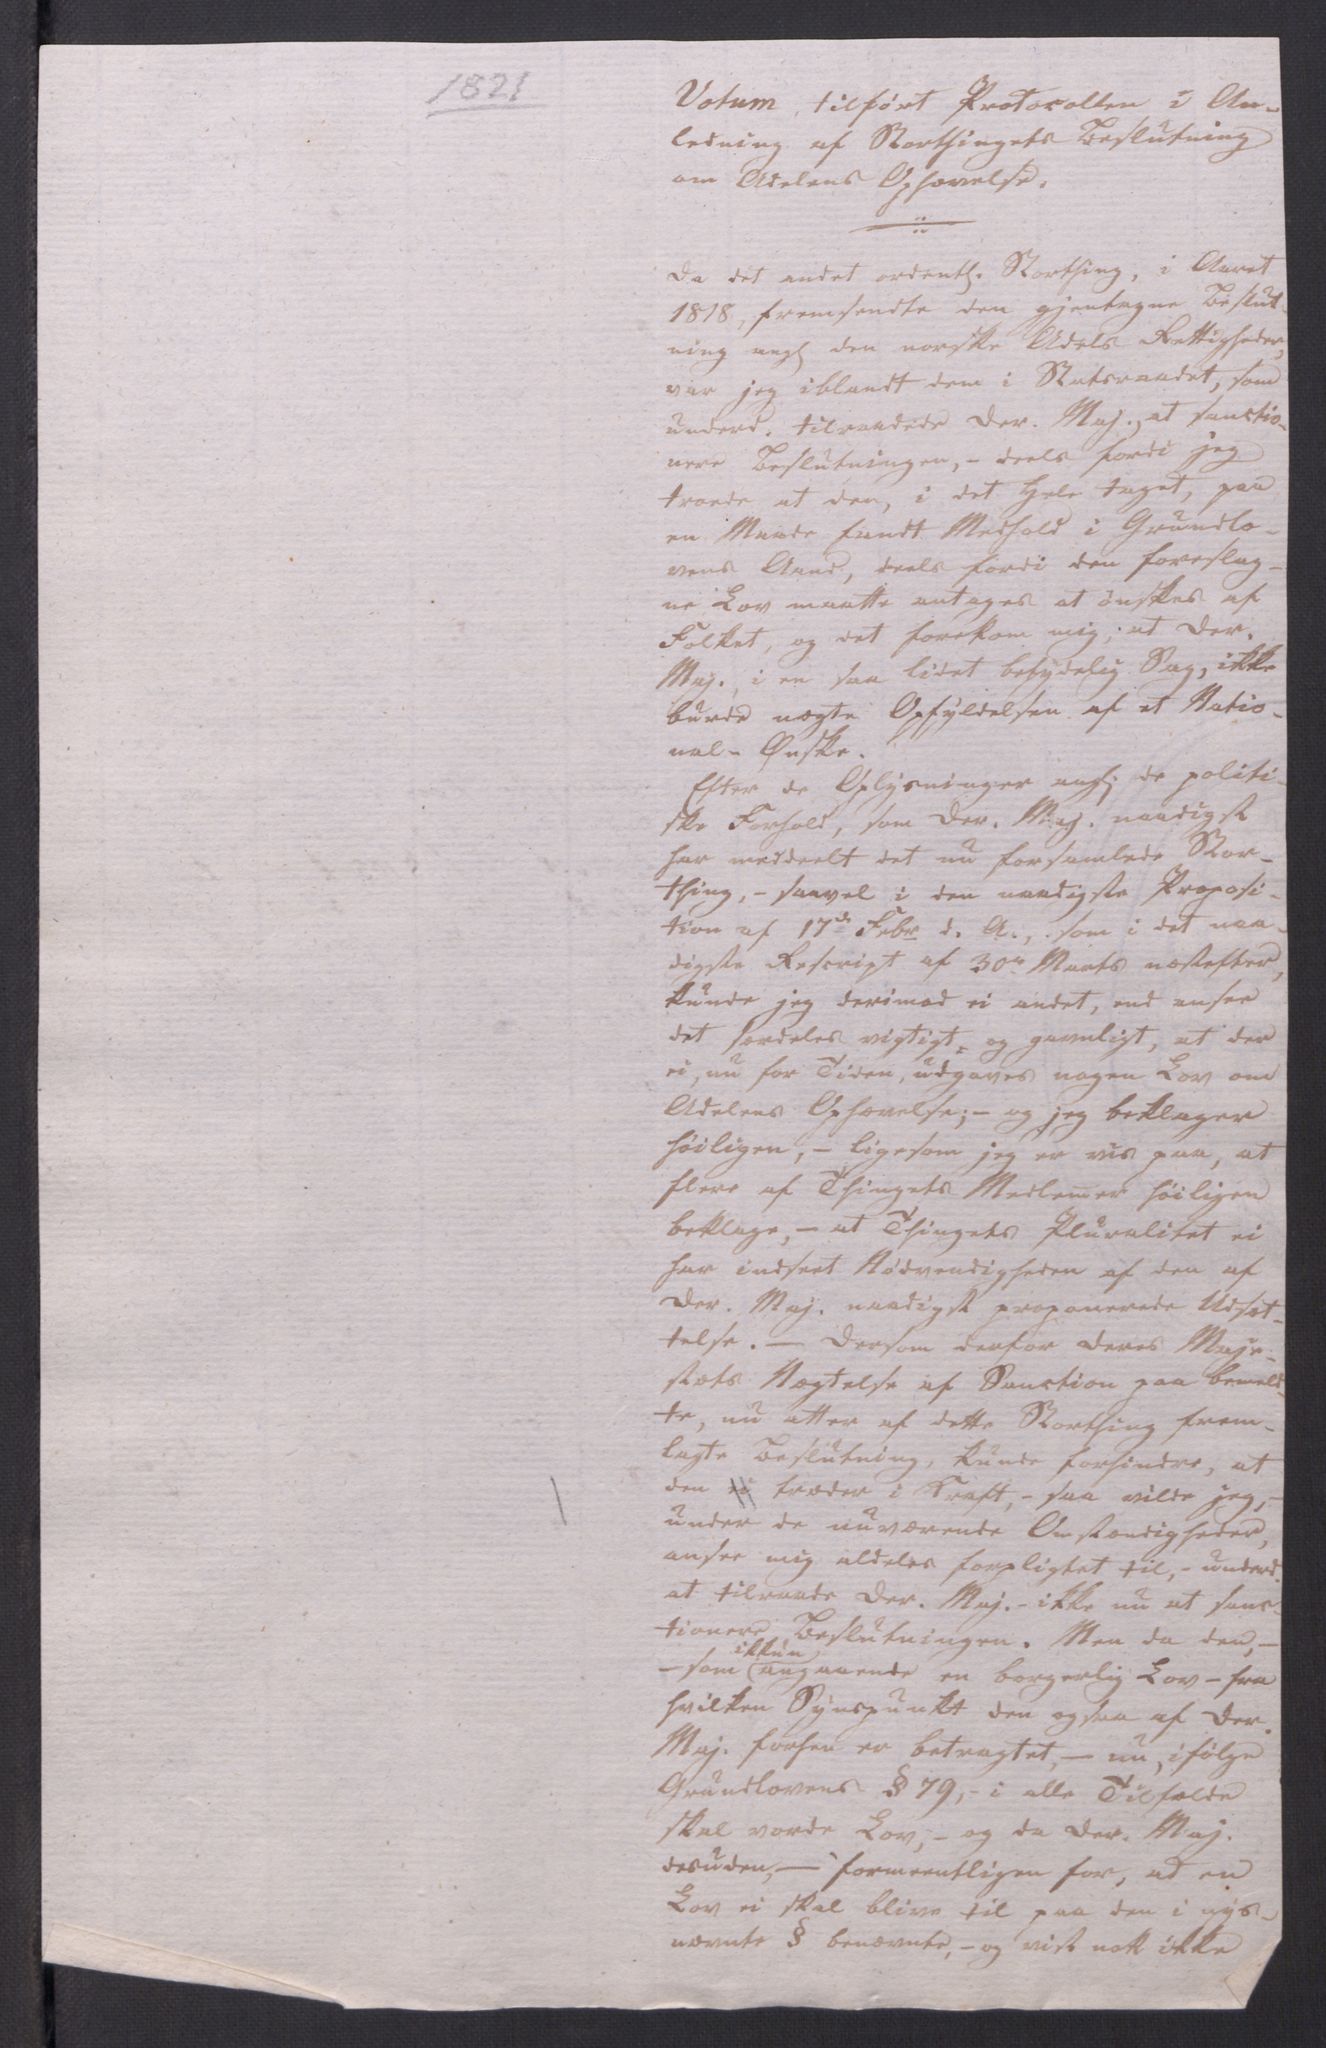 1821
Votum, tilført Protocollen i An-
ledning af Storthingets Beslutning
om Adelens Ophævelse.
Da det andet ordentl. Storthing, i Aaret
1818, fremsendte den gjentagne Beslut-
ning angl. den norske Adels Rettigheder,
var jeg iblandt dem i Statsraadet, som
underd. tilraadede Der. Maj., at sanctio-
nere Beslutningen, - deels fordi jeg
troede at den, i det Hele taget, paa
en Maade fandt Medhold i Grundlo-
vens Aand, deels fordi den foreslag-
ne Lov maatte antages at ønskes af
Folket, og det forekom mig, at Der.
Maj., i en saa lidet betydelig Sag, ikke
burde nægte Opfyldelsen af et Natio-
nal-Ønske.
Efter de Oplysninger angl. de politi-
ske Forhold, som Der. Maj. naadigst
har meddeelt det nu forsamlede Stor-
thing, - saavel i den naadigste Proposi-
tion af 17de Febr. d. A., som i det naa-
digste Rescript af 30te Marts næstefter,
kunde jeg derimod ei andet, end ansee
det særdeles vigtigt og gavnligt, at der
ei, nu for Tiden, udgaves nogen Lov om
Adelens Ophævelse; - og jeg beklager
høiligen, - ligesom jeg er vis paa, at
flere af Thingets Medlemer høiligen
beklage, - at Thingets Pluralitet ei
har indseet Nødvendigheden af den af
Der. Maj. naadigst proponerede Udsæt-
telse. - Dersom derfor Deres Maje-
stæts Nægtelse af Sanction paa bemeld-
te, nu atter af dette Storthing frem-
lagte Beslutning, kunde forhindre, at
den ei træder i Kraft, - saa vilde jeg, -
under de nuværende Omstændigheder,
ansee mig aldeles forpligtet til, - underd.
at tilraade Der. Maj. - ikke nu at sanc-
tionere Beslutningen. Men da den, -
- som ikkun angaaende en borgerlig Lov - fra
hvilken Synspunkt den ogsaa af Der.
Maj. forhen er betragtet, - nu, ifølge
Grundlovens § 79, - i alle Tilfælde
skal vorde Lov, - og da Der. Maj.
desuden, - formeentligen for, at en
Lov ei skal blive til paa den i nys-
nævnte § benævnte, - og vist nok ikke